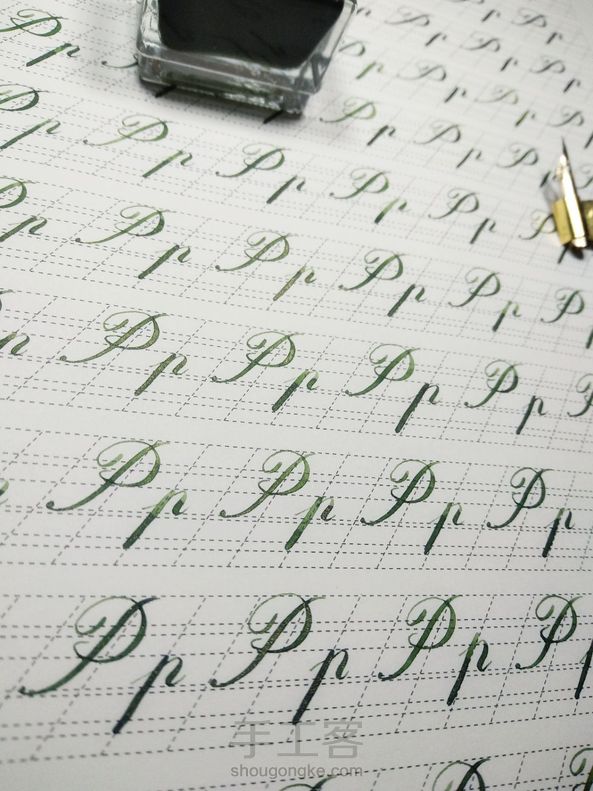 Pp Pp Pp
Pp Pp Pp
Pp Pp Pp Pp
Pp Pp Pp Pp
Pp Pp Pp Pp Pp
Pp Pp Pp Pp Pp Pp
p Pp Pp Pp Pp P
Pp Pp Pp Pp
Pp Pp Pp Pp
手工客
shougongke.com